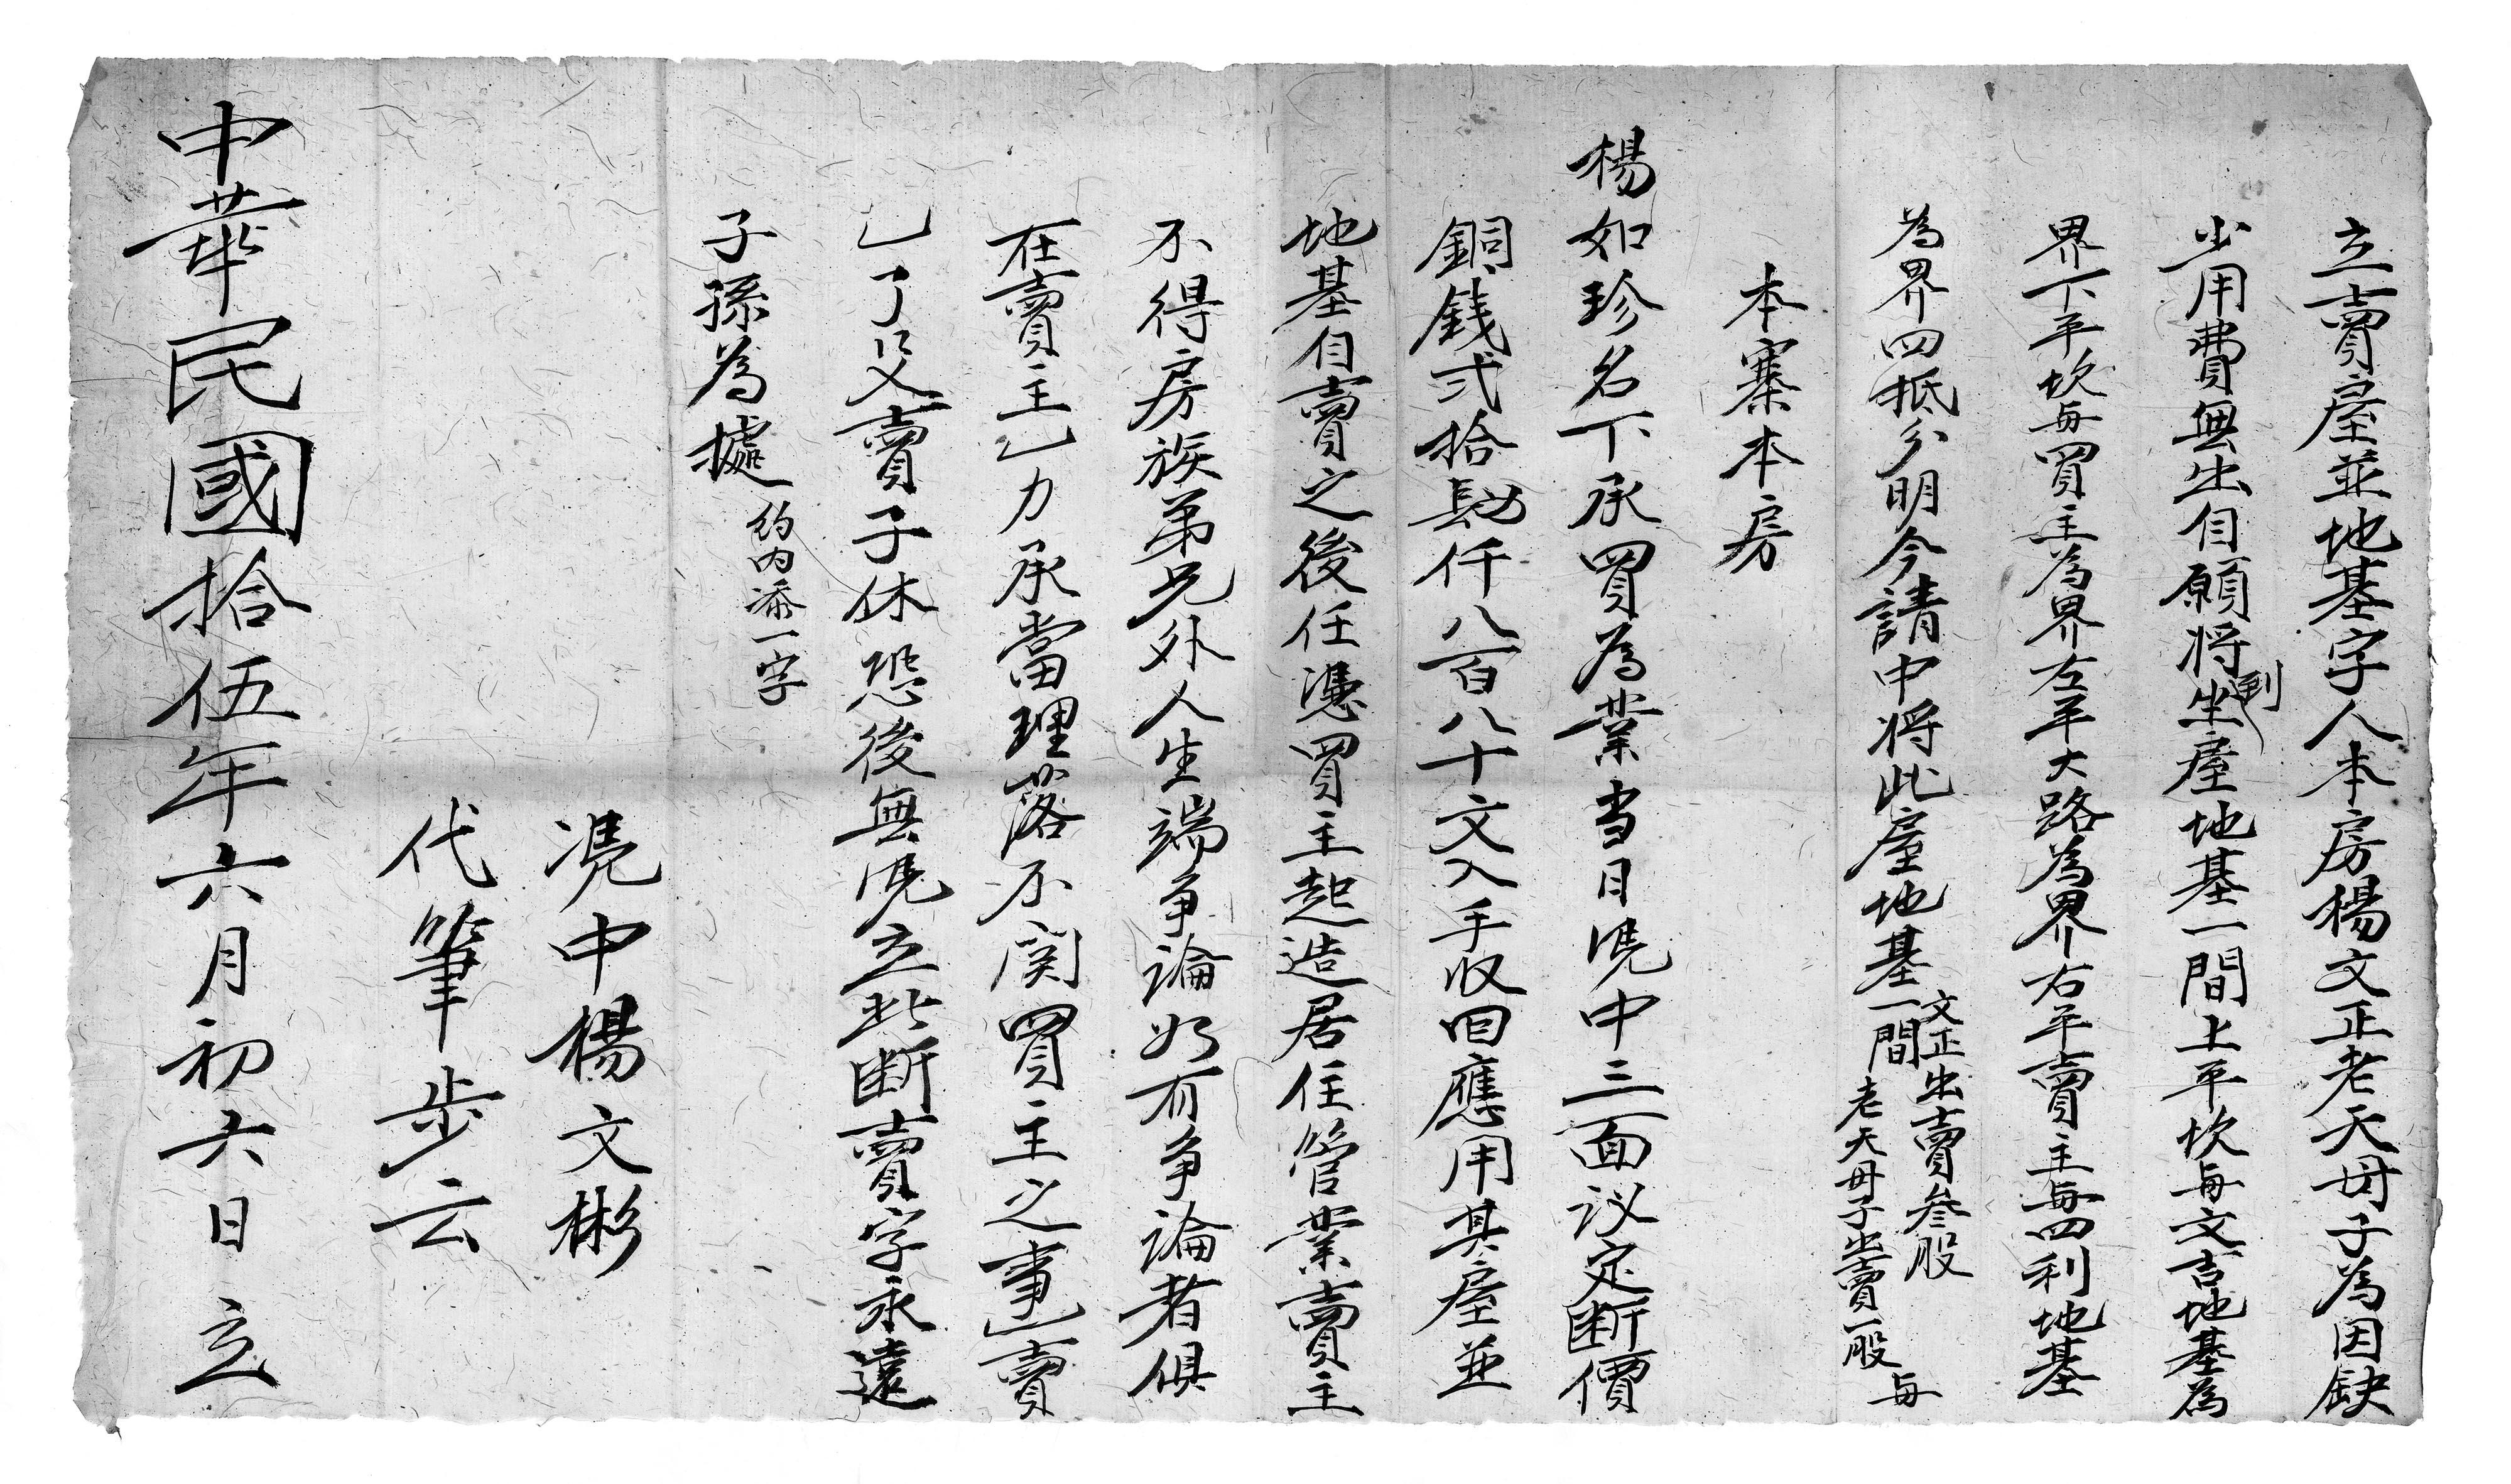 立賣屋並地基字人本房楊文正老天母子為因缺
少用費無出自願将到坐屋地基一間上平坎毎文吉地基為
界下平坎毎買主為界左平大路為界右平賣主毎四利地基
為界四抵分明今請中将此屋地基一間文正出賣叁股老天母子出賣一股毎
本寨本房
楊如珍名下承買為業当日凴中三面议定断價
銅錢弍拾勀仟八百八十文入手收回應用其屋並
地基自賣之後任憑買主起造居住管業賣主
不得房族弟兄外人生端争論如有争論者俱
在賣主乙力承當理落不関買主之事乙賣
乙了父賣子休恐後無凴立此断賣字永遠
子孫為據
約内添一字
凴中楊文彬
代筆步云
中華民國拾伍年六月初六日立